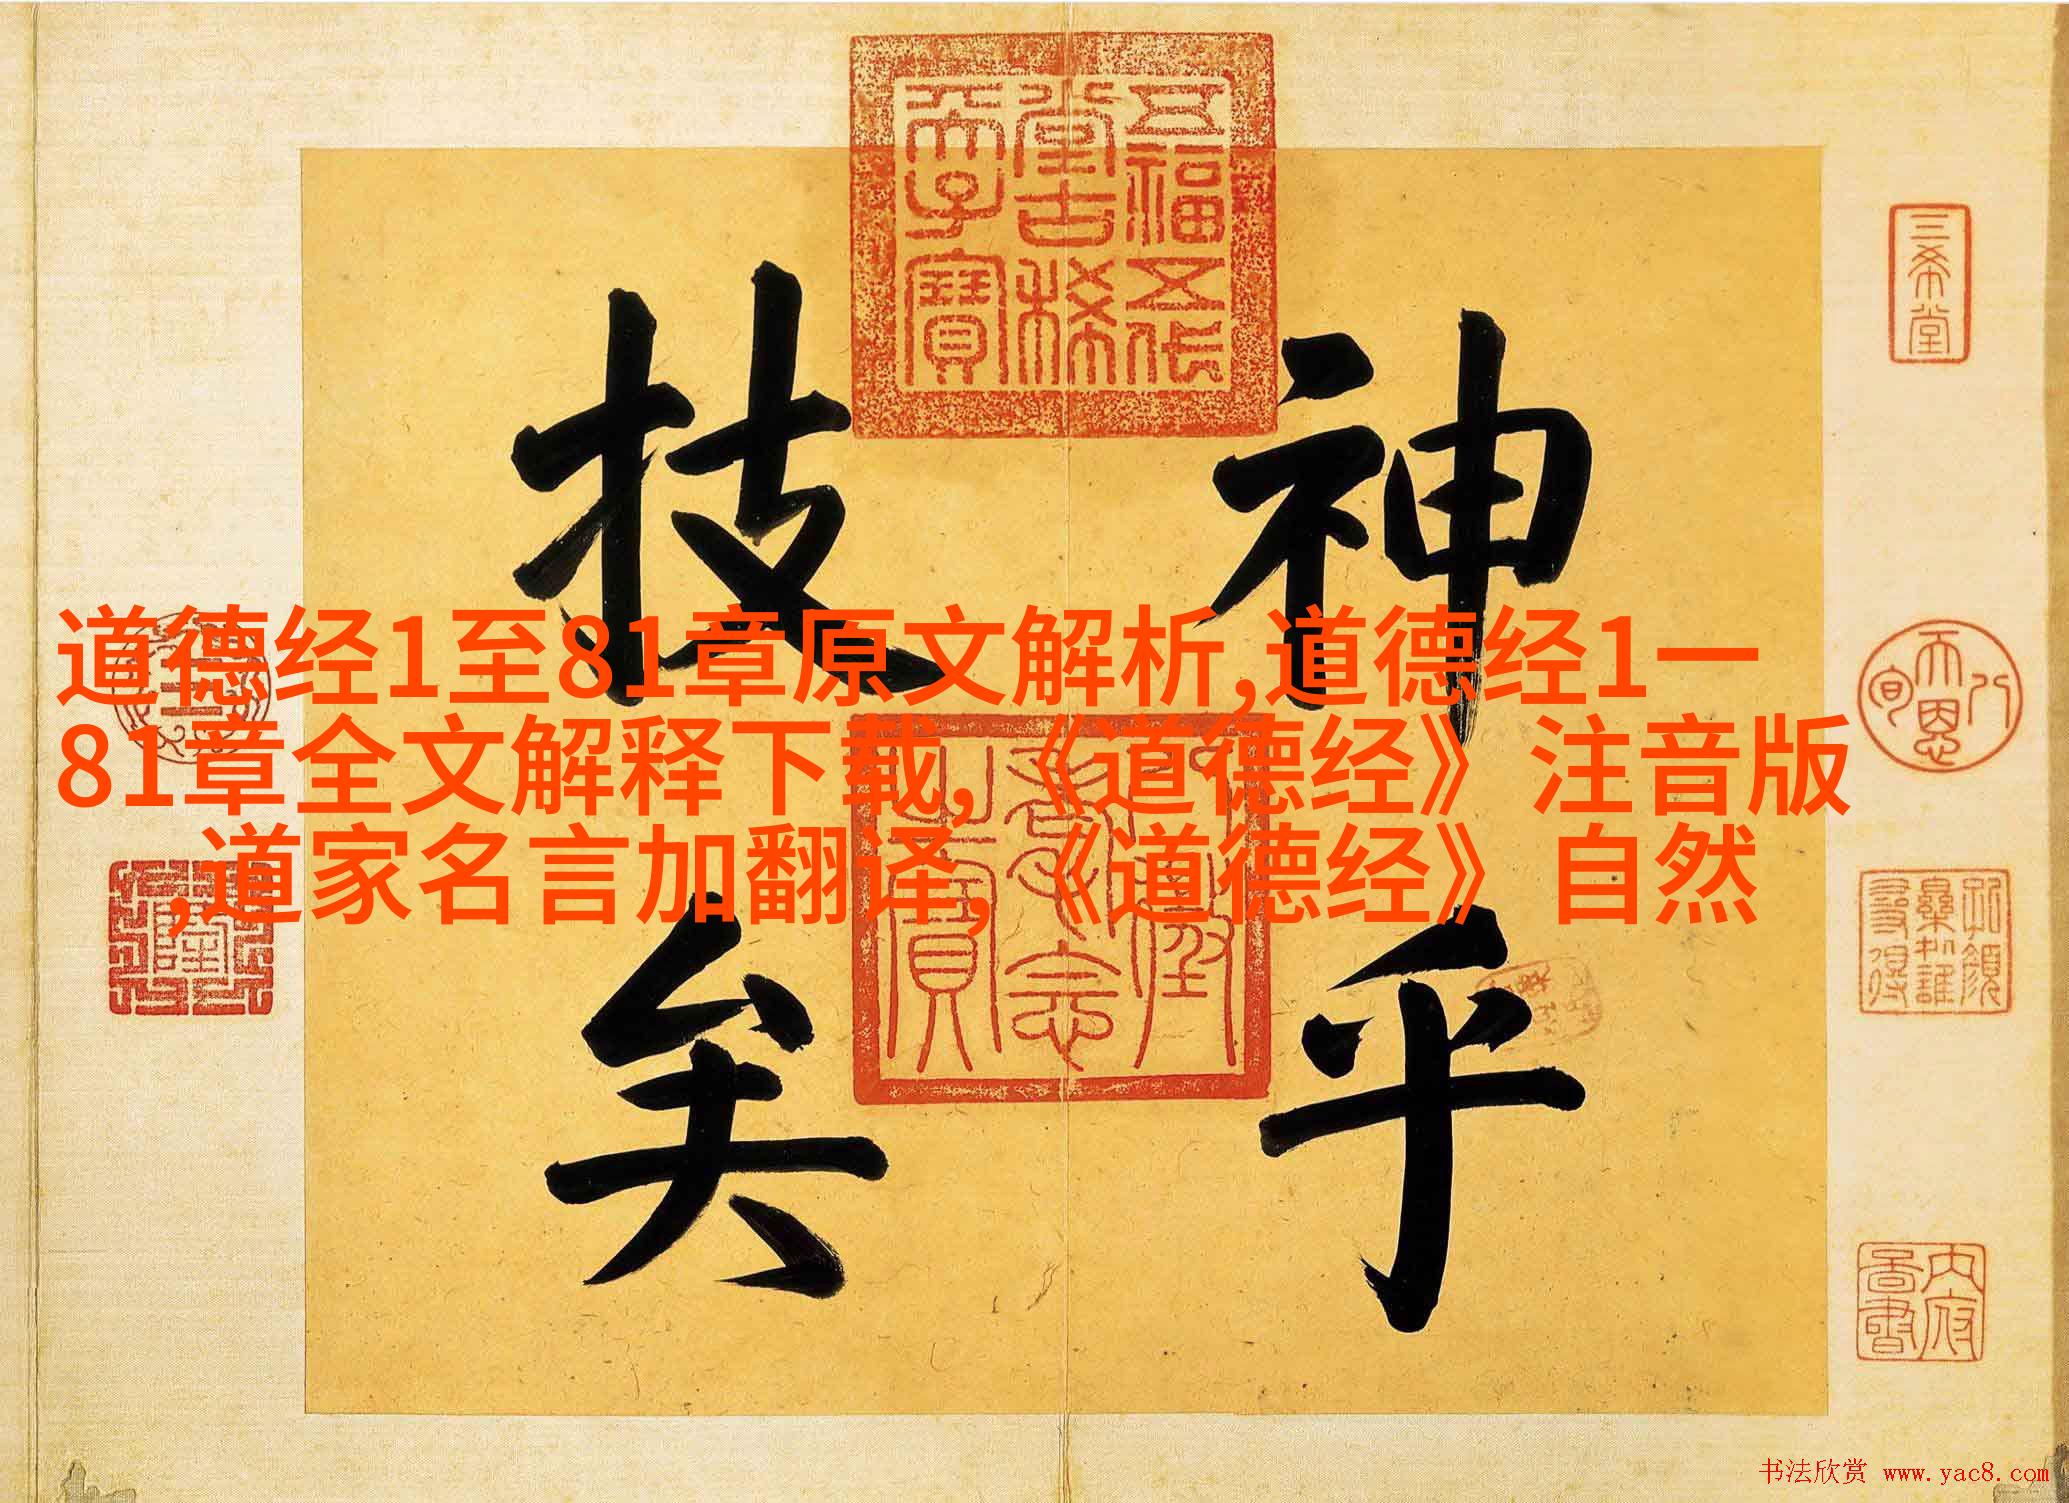 神乎
技矣
五福五代
堂古稀
天子寶
三希堂
八
天恩
旬
道德经1至81章原文解析,道德经1一
81章全文解释下载,《道德经》注音版
,道家名言加翻译,《道德经》自然
内府
书法欣赏 www.yac8.com